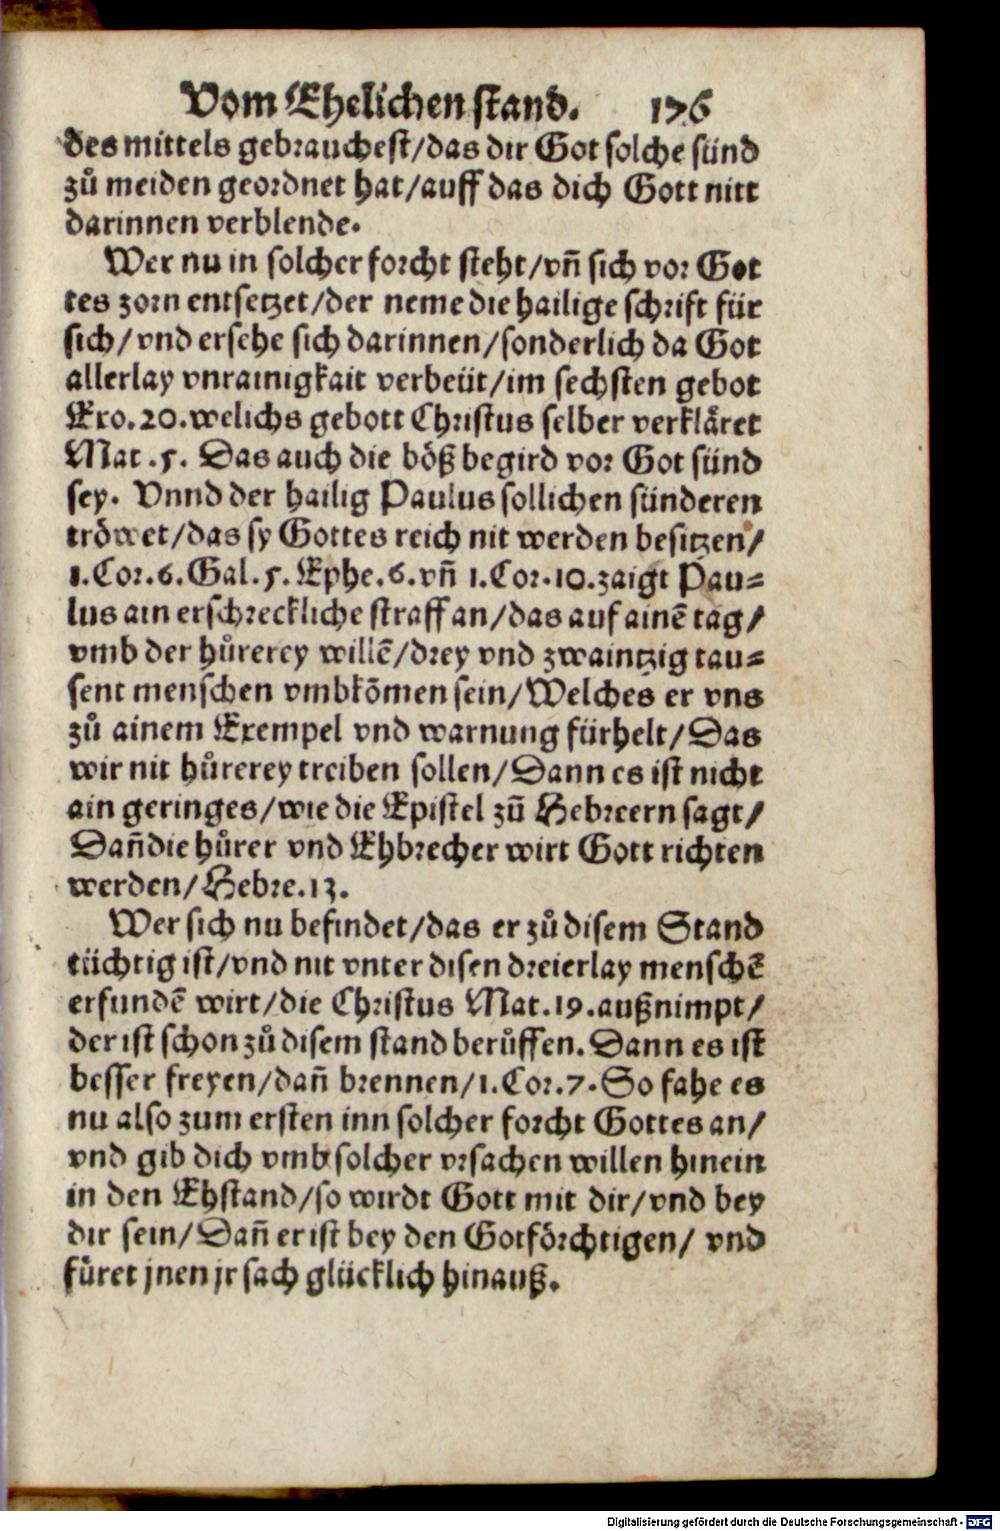 Vom Ehelichen stand. 176
des mittels gebrauchest/das dir Got solche sünd
zů meiden geordnet hat/auff das dich Gott nitt
darinnen verblende.
Wer nu in solcher forcht steht/vn̄ sich vor Got
tes zorn entsetzet/der neme die hailige schrift für
sich/vnd ersehe sich darinnen/sonderlich da Got
allerlay vnrainigkait verbeüt/im sechsten gebot
Exo.20.welichs gebott Christus selber verkläret
Mat.5. Das auch die böß begird vor Got sünd
sey. Vnnd der hailig Paulus sollichen sünderen
tröwet/das sy Gottes reich nit werden besitzen/
1.Cor.6.Gal.5.Ephe.6.vn̄ 1.Cor.10.zaigt Pau=
lus ain erschreckliche straff an/das auf ainē tag/
vmb der hůrerey willē/drey vnd zwaintzig tau=
sent menschen vmbkōmen sein/Welches er vns
zů ainem Exempel vnd warnung fürhelt/Das
wir nit hůrerey treiben sollen/Dann es ist nicht
ain geringes/wie die Epistel zū Hebreern sagt/
Dan̄ die hůrer vnd Ehbrecher wirt Gott richten
werden/Hebre.13.
Wer sich nu befindet/das er zů disem Stand
tüchtig ist/vnd nit vnter disen dreierlay menschē
erfundē wirt/die Christus Mat.19.außnimpt/
der ist schon zů disem stand berůffen. Dann es ist
besser freyen/dan̄ brennen/1.Cor.7. So fahe es
nu also zum ersten inn solcher forcht Gottes an/
vnd gib dich vmb solcher vrsachen willen hinein
in den Ehstand/so wirdt Gott mit dir/vnd bey
dir sein/Dan̄ er ist bey den Gotförchtigen/ vnd
fůret jnen jr sach glücklich hinauß.
Digitalisierung gefördert durch die Deutsche Forschungsgemeinschaft - DFG